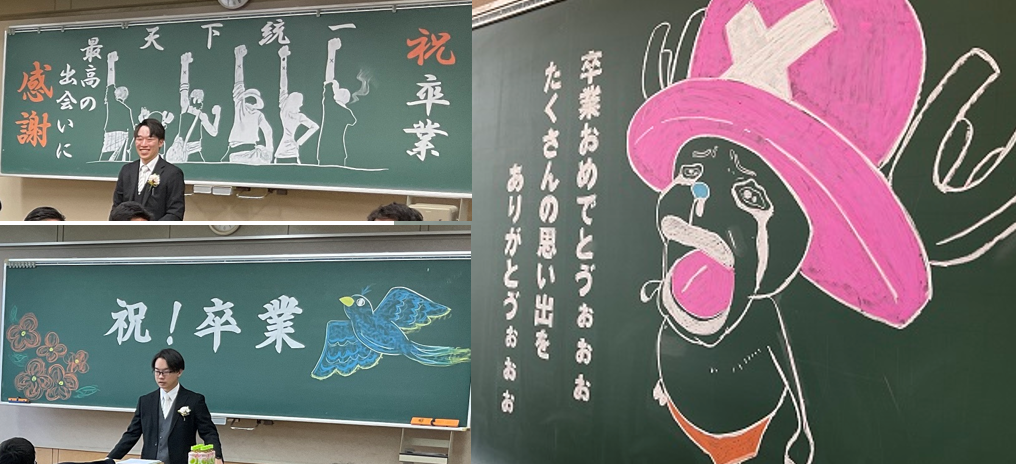 天下統一
祝
卒業
最高の
出会いに
感謝
祝！卒業
卒業おめでとゔぉぉぉ
たくさんの思い出を
ありがとゔぉぉぉ